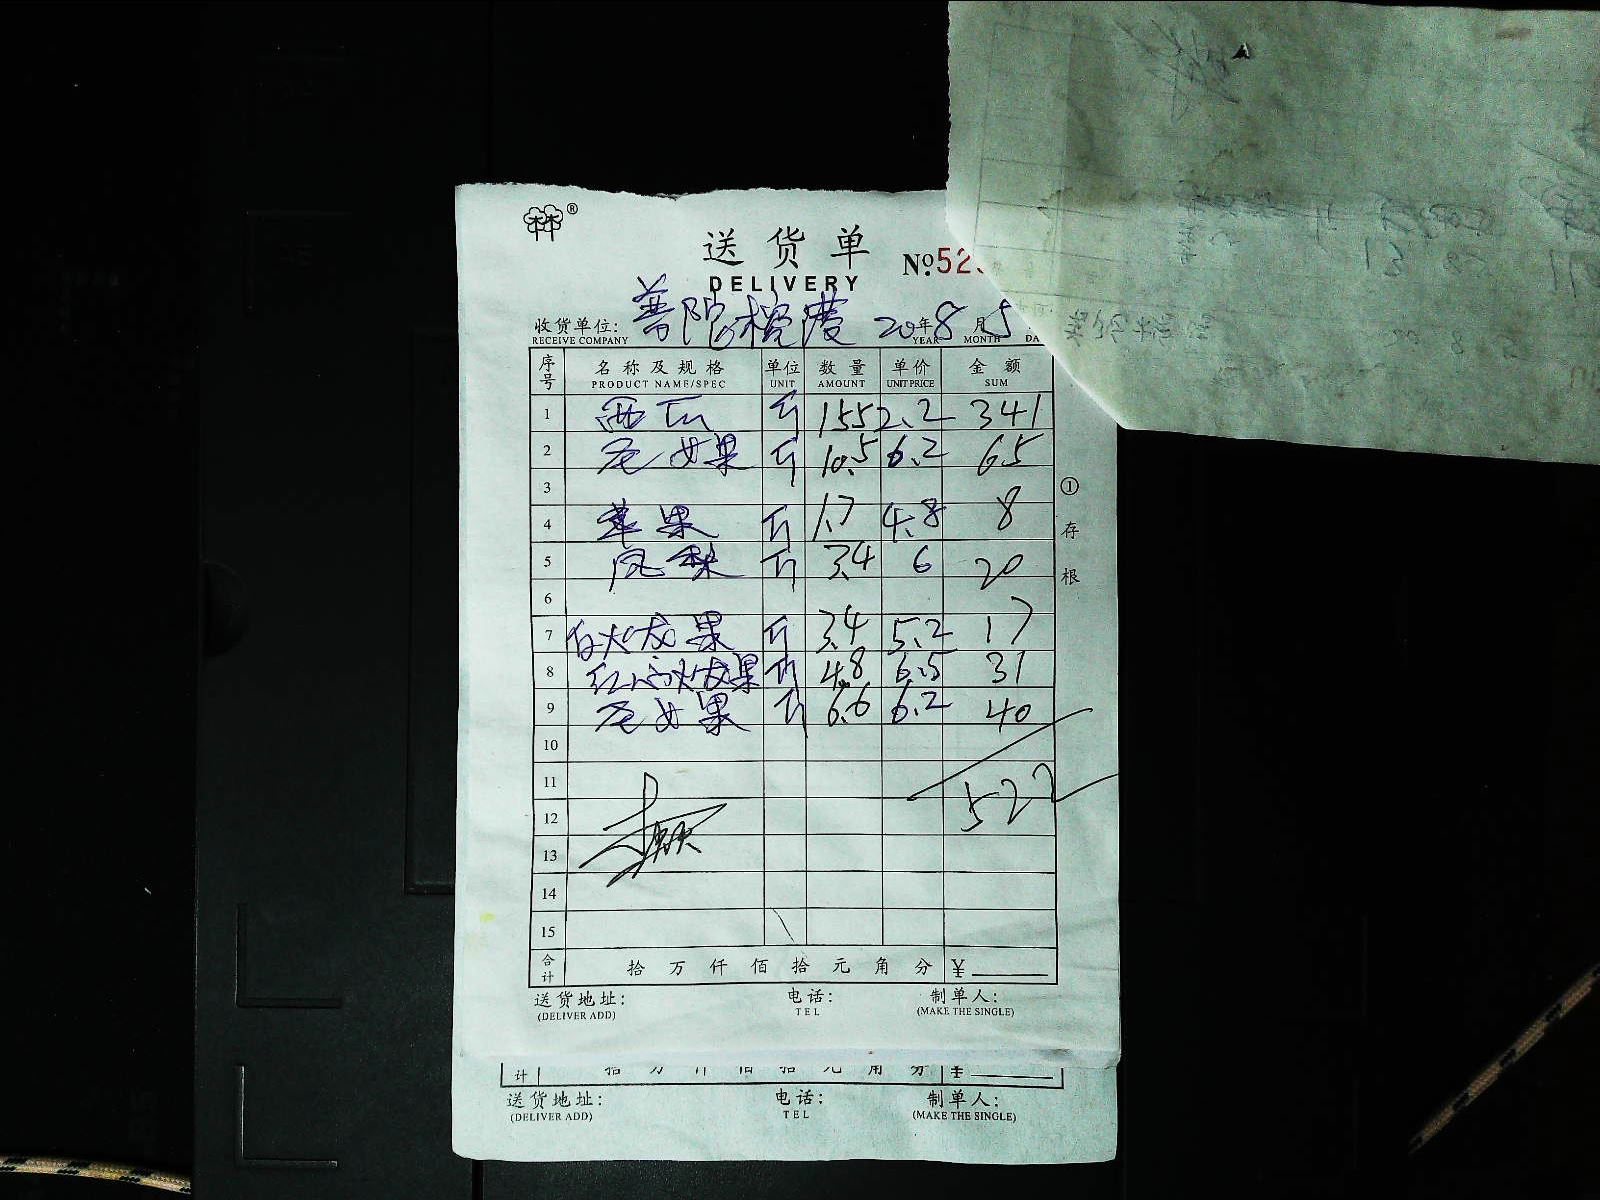 林林®
送货单
№52
DELIVERY
收货单位: 普陀 20年8月5
RECEIVE COMPANY YEAR MONTH DA
序号 名称及规格 单位 数量 单价 金额
PRODUCT NAME/SPEC UNIT AMOUNT UNIT PRICE SUM
1 西瓜 斤 155 2.2 341
2 圣女果 斤 10.5 6.2 65
3
4 苹果 斤 1.7 4.8 8
5 凤梨 斤 3.4 6 20
6
7 白火龙果 斤 3.4 5.2 17
8 红心火龙果 斤 4.8 6.5 31
9 圣女果 斤 6.6 6.2 40
10
11
12 522
13
14
15
合计 拾 万 仟 佰 拾 元 角 分 ¥
①存根
送货地址: 电话: 制单人:
(DELIVER ADD) TEL (MAKE THE SINGLE)
计 拾 万 仟 佰 拾 元 角 分 ¥
送货地址: 电话: 制单人:
(DELIVER ADD) TEL (MAKE THE SINGLE)